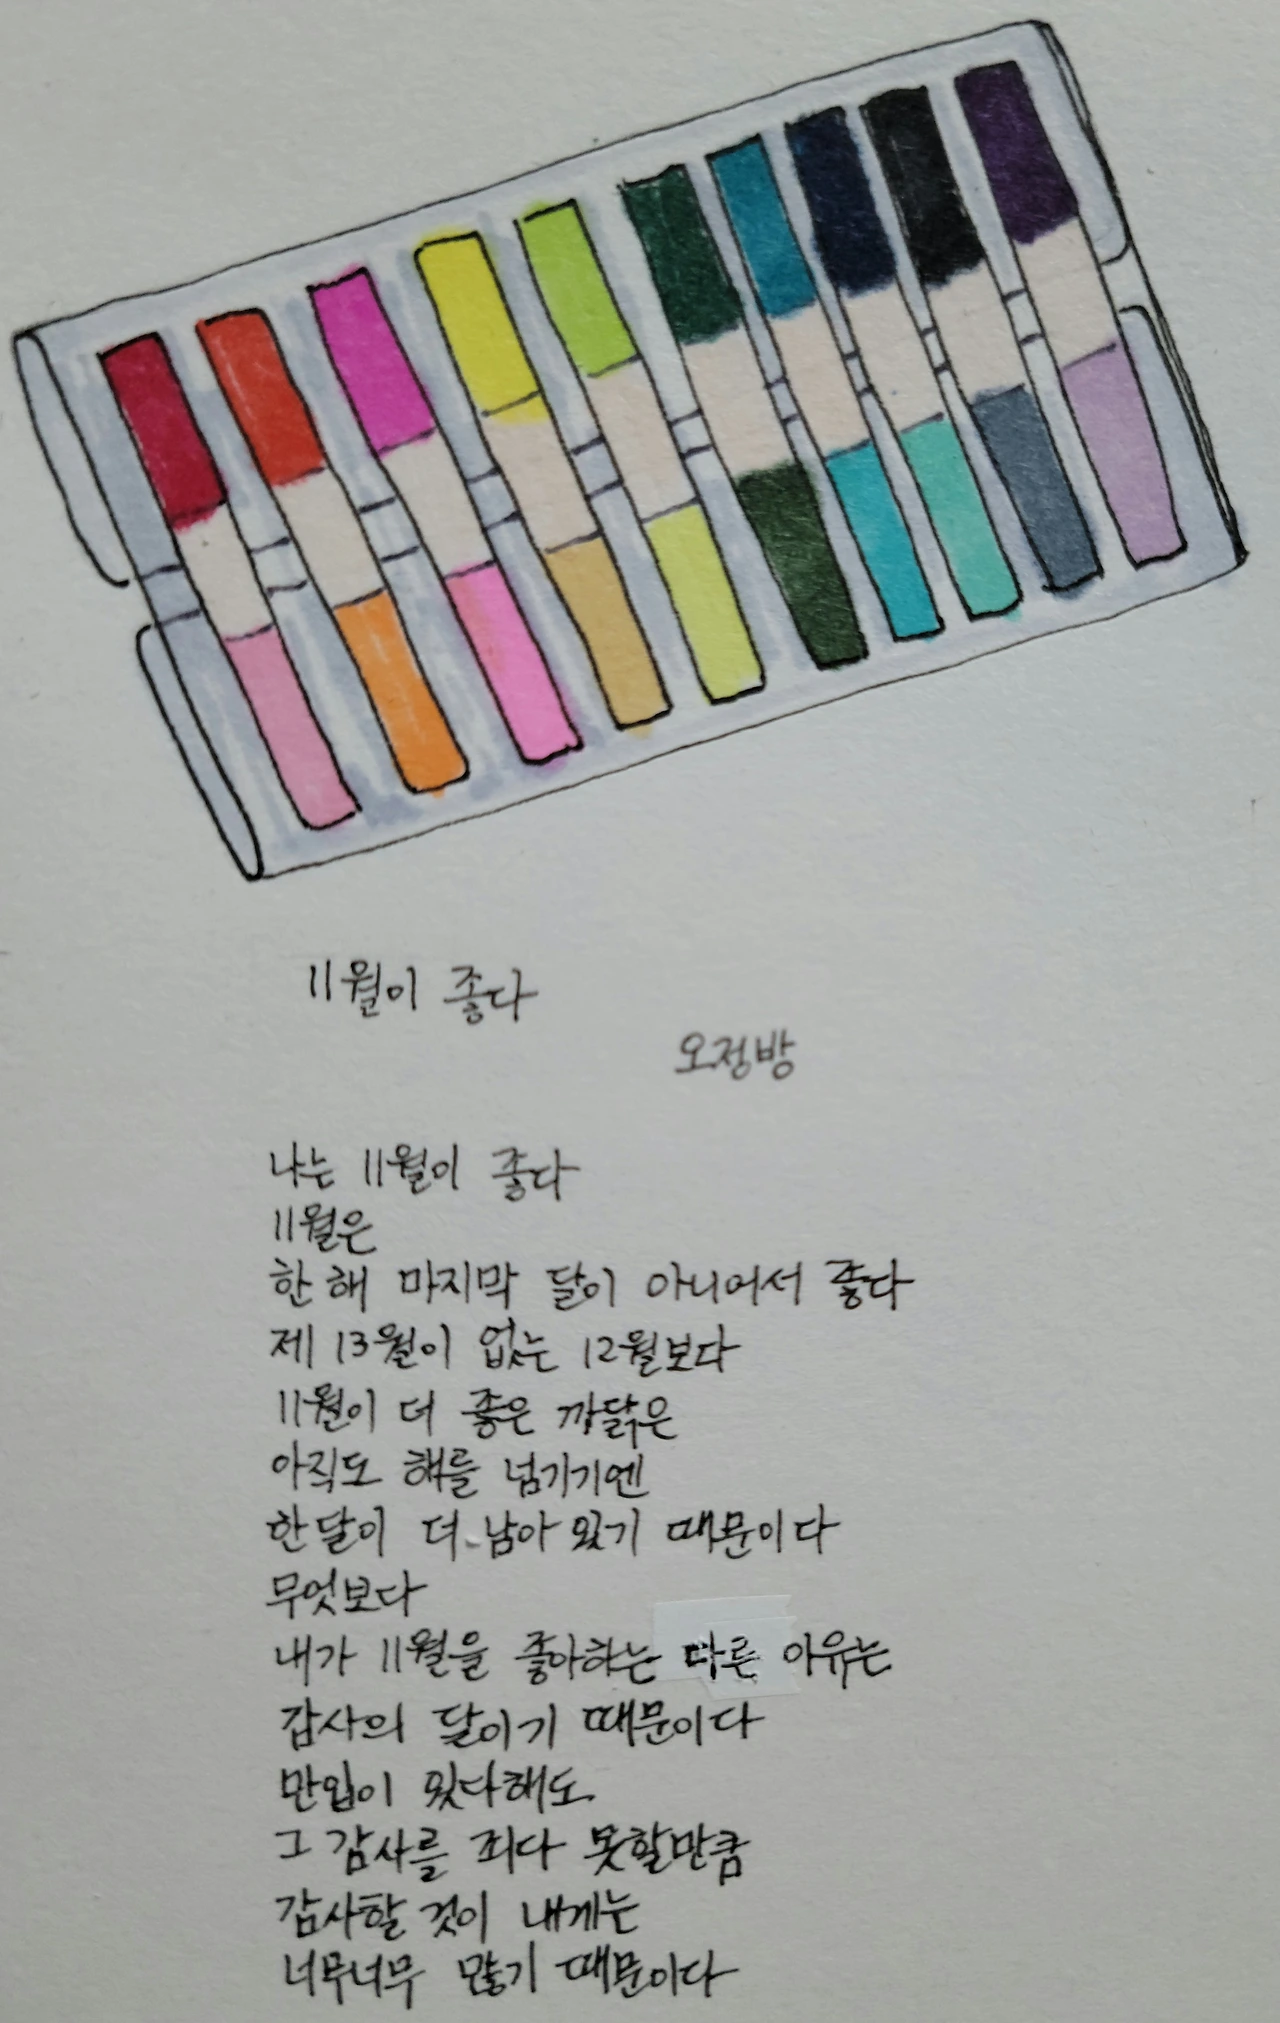 11월이 좋다
오정방
나는 11월이 좋다
11월은
한해 마지막 달이 아니어서 좋다
제 13월이 없는 12월보다
11월이 더 좋은 까닭은
아직도 해를 넘기기엔
한달이 더 남아 있기 때문이다
무엇보다
내가 11월을 좋아하는 다른 이유는
감사의 달이기 때문이다
만입이 있다해도
그 감사를 죄다 못할만큼
감사할 것이 내게는
너무너무 많기 때문이다